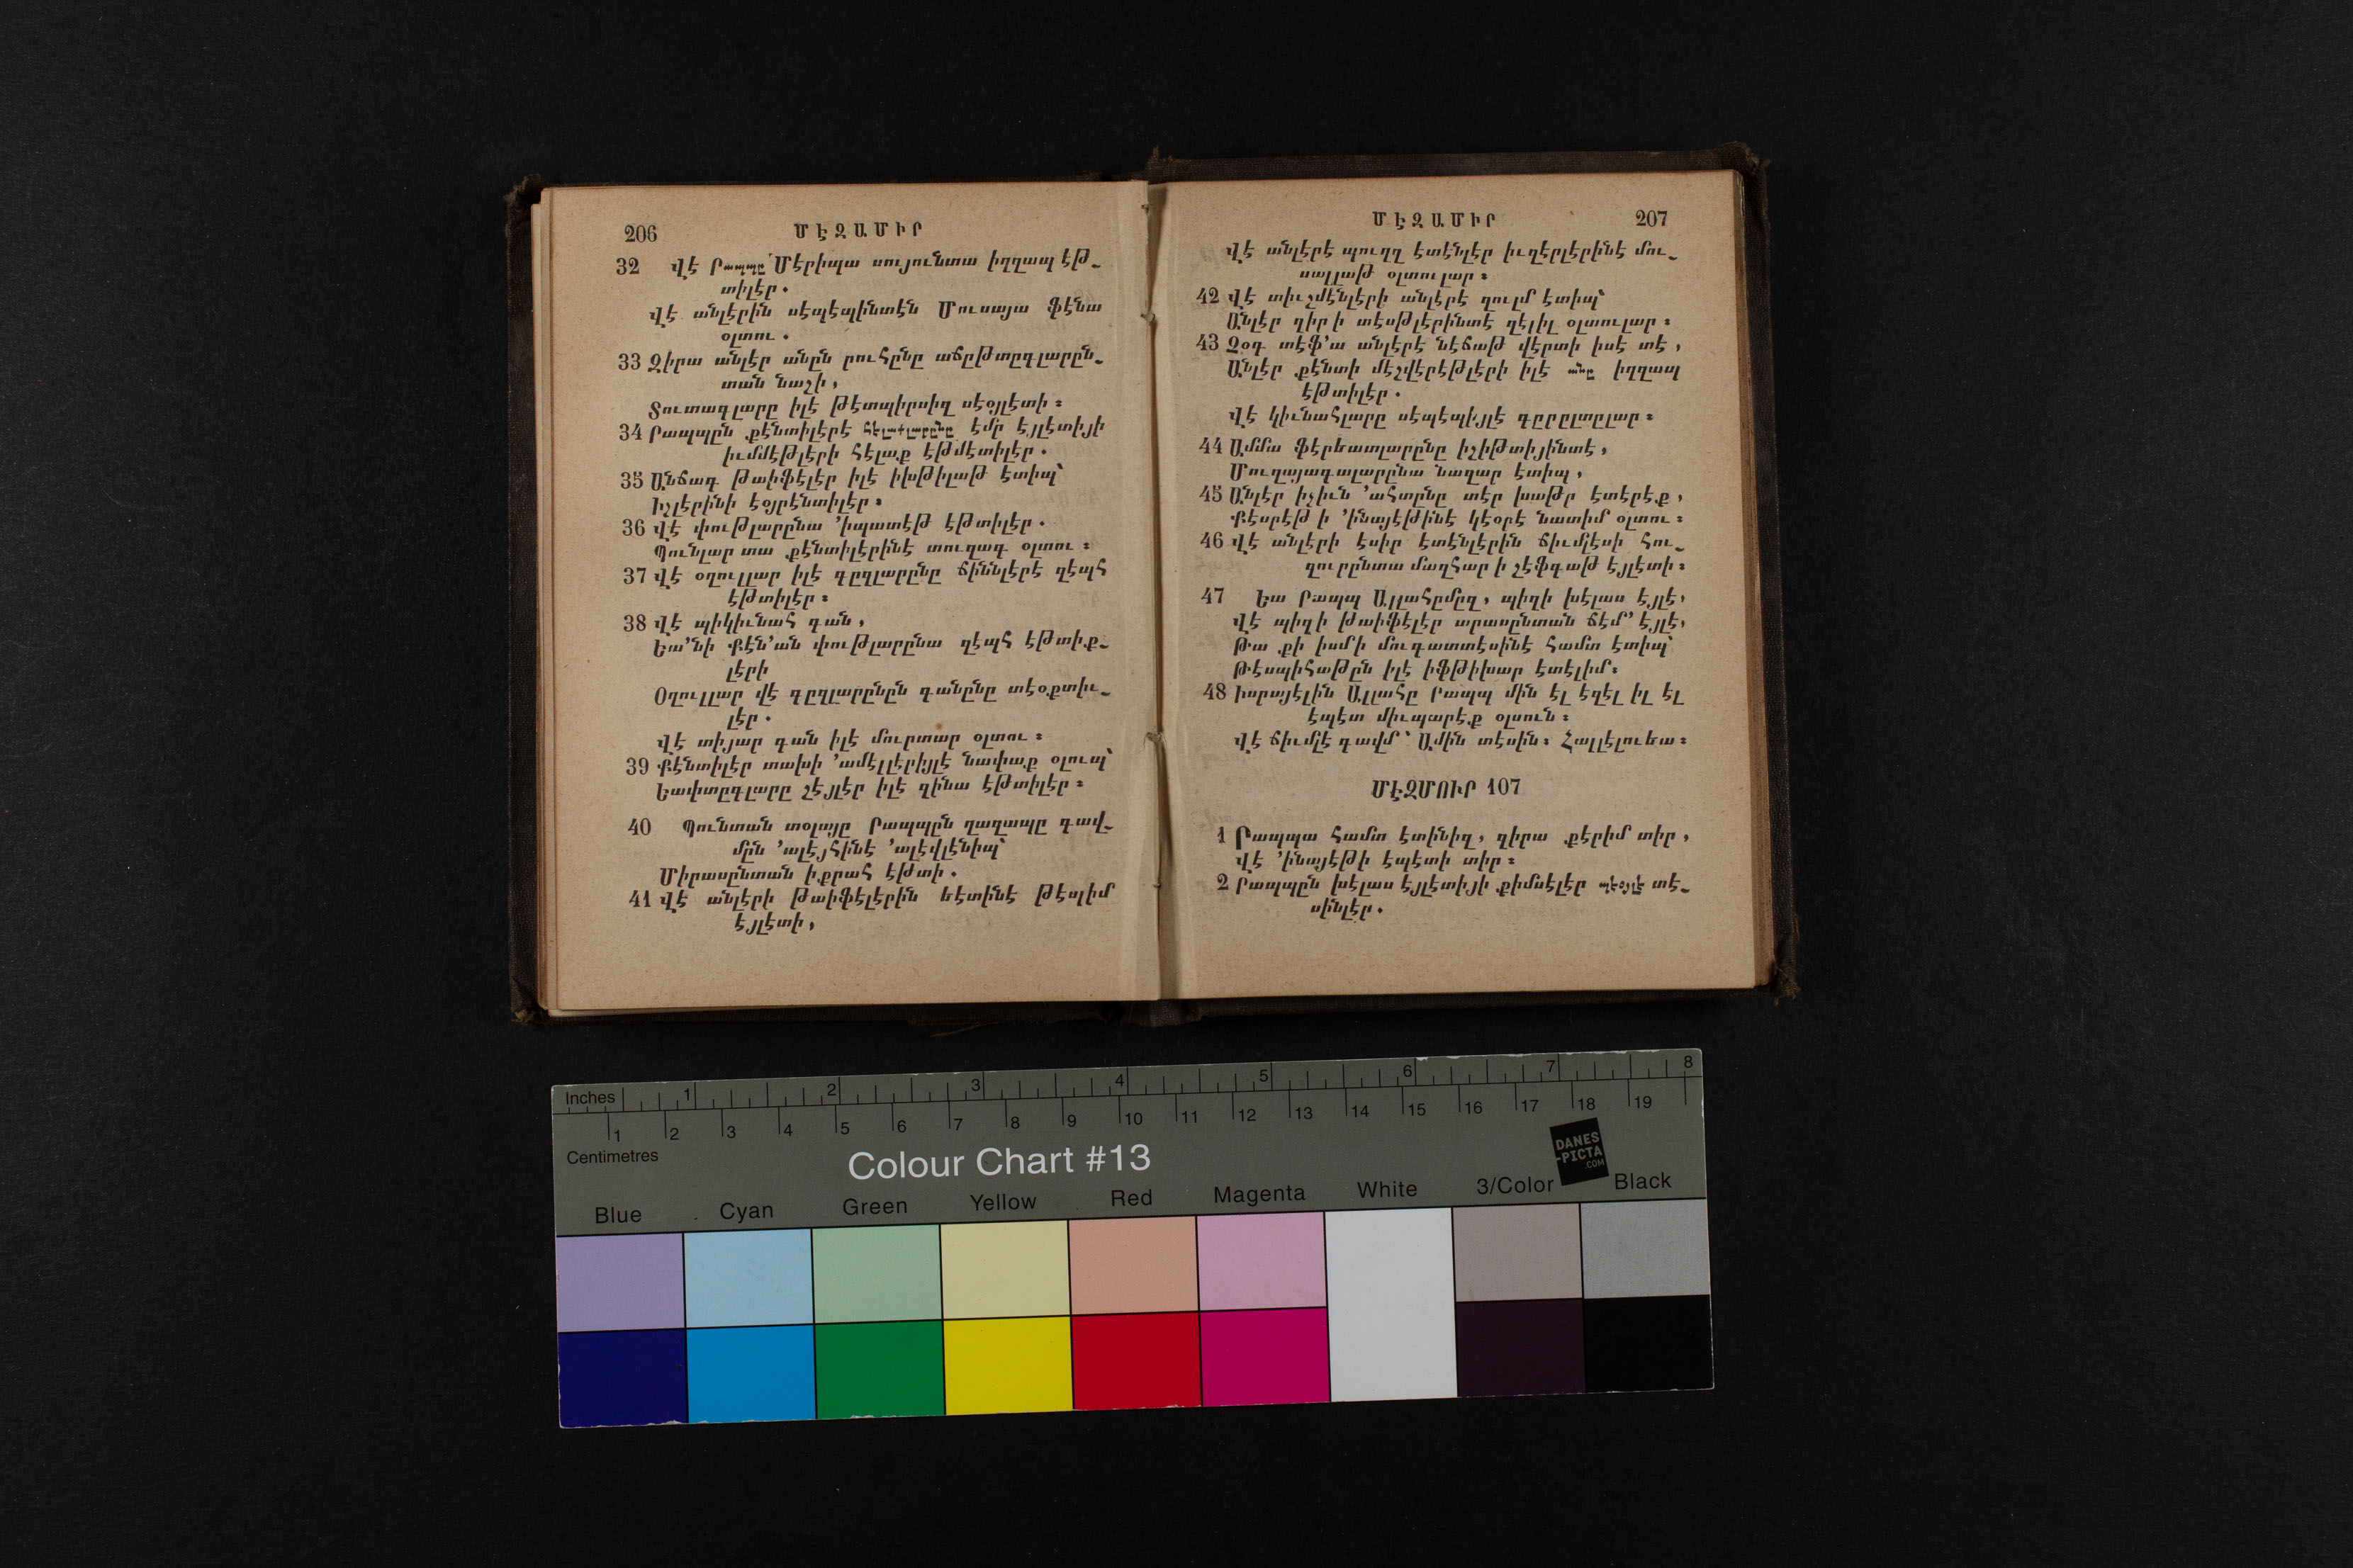 206
ՄԷԶԱՄԻՐ
32 Վէ Րապպը Մէրիպա սույունտա իղղապ էթ֊
տիլէր.
Վէ անլէրին սէպէպինտէն Մուսայա ֆէնա
օլտու.
33 Զիրա անլէր անըն րուհընը աճըթտըգլարըն֊
տան նաչի,
Տուտագլարը իլէ թէտպիրսիզ սէօյլէտի։
34 Րապպըն քէնտիլէրէ հէլաքլարընը էմր էյլէտիյի
իւմմէթլէրի հէլաք էթմէտիլէր.
35 Անճագ թաիֆէլէր իլէ իխթիլաթ էտիպ՝
Իշլէրինի էօյրէնտիլէր։
36 Վէ փութլարընա ՚իպատէթ էթտիլէր.
Պունլար տա քէնտիլէրինէ տուզագ օլտու։
37 Վէ օղուլլար իլէ գըզլարընը ճիննլէրէ զէպհ
էթտիլէր։
38 Վէ պիկիւնահ գան,
Եա՚նի Քէն՚ան փութլարընա զէպհ էթտիք֊
լէրի
Օղուլլար վէ գըզլարընըն գանընը տէօքտիւ֊
լէր.
Վէ տիյար գան իլէ մուրտար օլտու։
39 Քէնտիլէր տախի ՚ամէլլէրիյլէ նափաք օլուպ՝
Եափտըգլարը շէյլէր իլէ զինա էթտիլէր։
40 Պունտան տօլայը Րապպըն ղաղապը գավ֊
մըն ՚ալէյհինէ ՚ալէվլէնիպ՝
Միրասընտան իքրահ էթտի.
41 Վէ անլէրի թաիֆէլէրին եէտինէ թէսլիմ
էյլէտի,
ՄԷԶԱՄԻՐ
207
Վէ անլէրէ պուղզ էտէնլէր իւզէրլէրինէ մու֊
սալլաթ օլտուլար։
42 Վէ տիւշմէնլէրի անլէրէ զուլմ էտիպ՝
Անլէր զիր ի տէսթլէրինտէ զէլիլ օլտուլար։
43 Չօգ տէֆ՚ա անլէրէ նէճաթ վէրտի իսէ տէ,
Անլէր քէնտի մէշվէրէթլէրի իլէ անը իղղապ
էթտիլէր.
Վէ կիւնահլարը սէպէպիյլէ գըրըլտըլար։
44 Ամմա ֆէրեատլարընը իշիթտիյինտէ,
Մուզայագալարընա նազար էտիպ,
45 Անլէր իչիւն ՚ահտընը տէր խաթր էտէրէք,
Քէսրէթ ի ՚ինայէթինէ կէօրէ նատիմ օլտու։
46 Վէ անլէրի էսիր էտէնլէրին ճիւմլէսի հու֊
զուրընտա մազհար ի շէֆգաթ էյլէտի։
47 Եա Րապպ Ալլահըմըզ, պիզի խէլաս էյլէ,
Վէ պիզի թաիֆէլէր արասընտան ճէմ՚ էյլէ,
Թա քի իսմ ի մուգատտէսինէ համտ էտիպ՝
Թէսպիհաթըն իլէ իֆթիխար էտէլիմ։
48 Իսրայէլին Ալլահը Րապպ մին էլ էզէլ իլ էլ
էպէտ միւպարէք օլսուն։
Վէ ճիւմլէ գավմ՝ Ամին տէսին։ Հալլէլուեա։
ՄԷԶՄՈՒՐ 107
1 Րապպա համտ էտինիզ, զիրա քէրիմ տիր,
Վէ ՚ինայէթի էպէտի տիր։
2 Րապպըն խէլաս էյլէտիյի քիմսէլէր պէօյլէ տէ֊
սինլէր.
Inches 1 2 3 4 5 6 7 8
1 2 3 4 5 6 7 8 9 10 11 12 13 14 15 16 17 18 19
Centimetres
Colour Chart #13
DANES
-PICTA
.COM
Blue Cyan Green Yellow Red Magenta White 3/Color Black